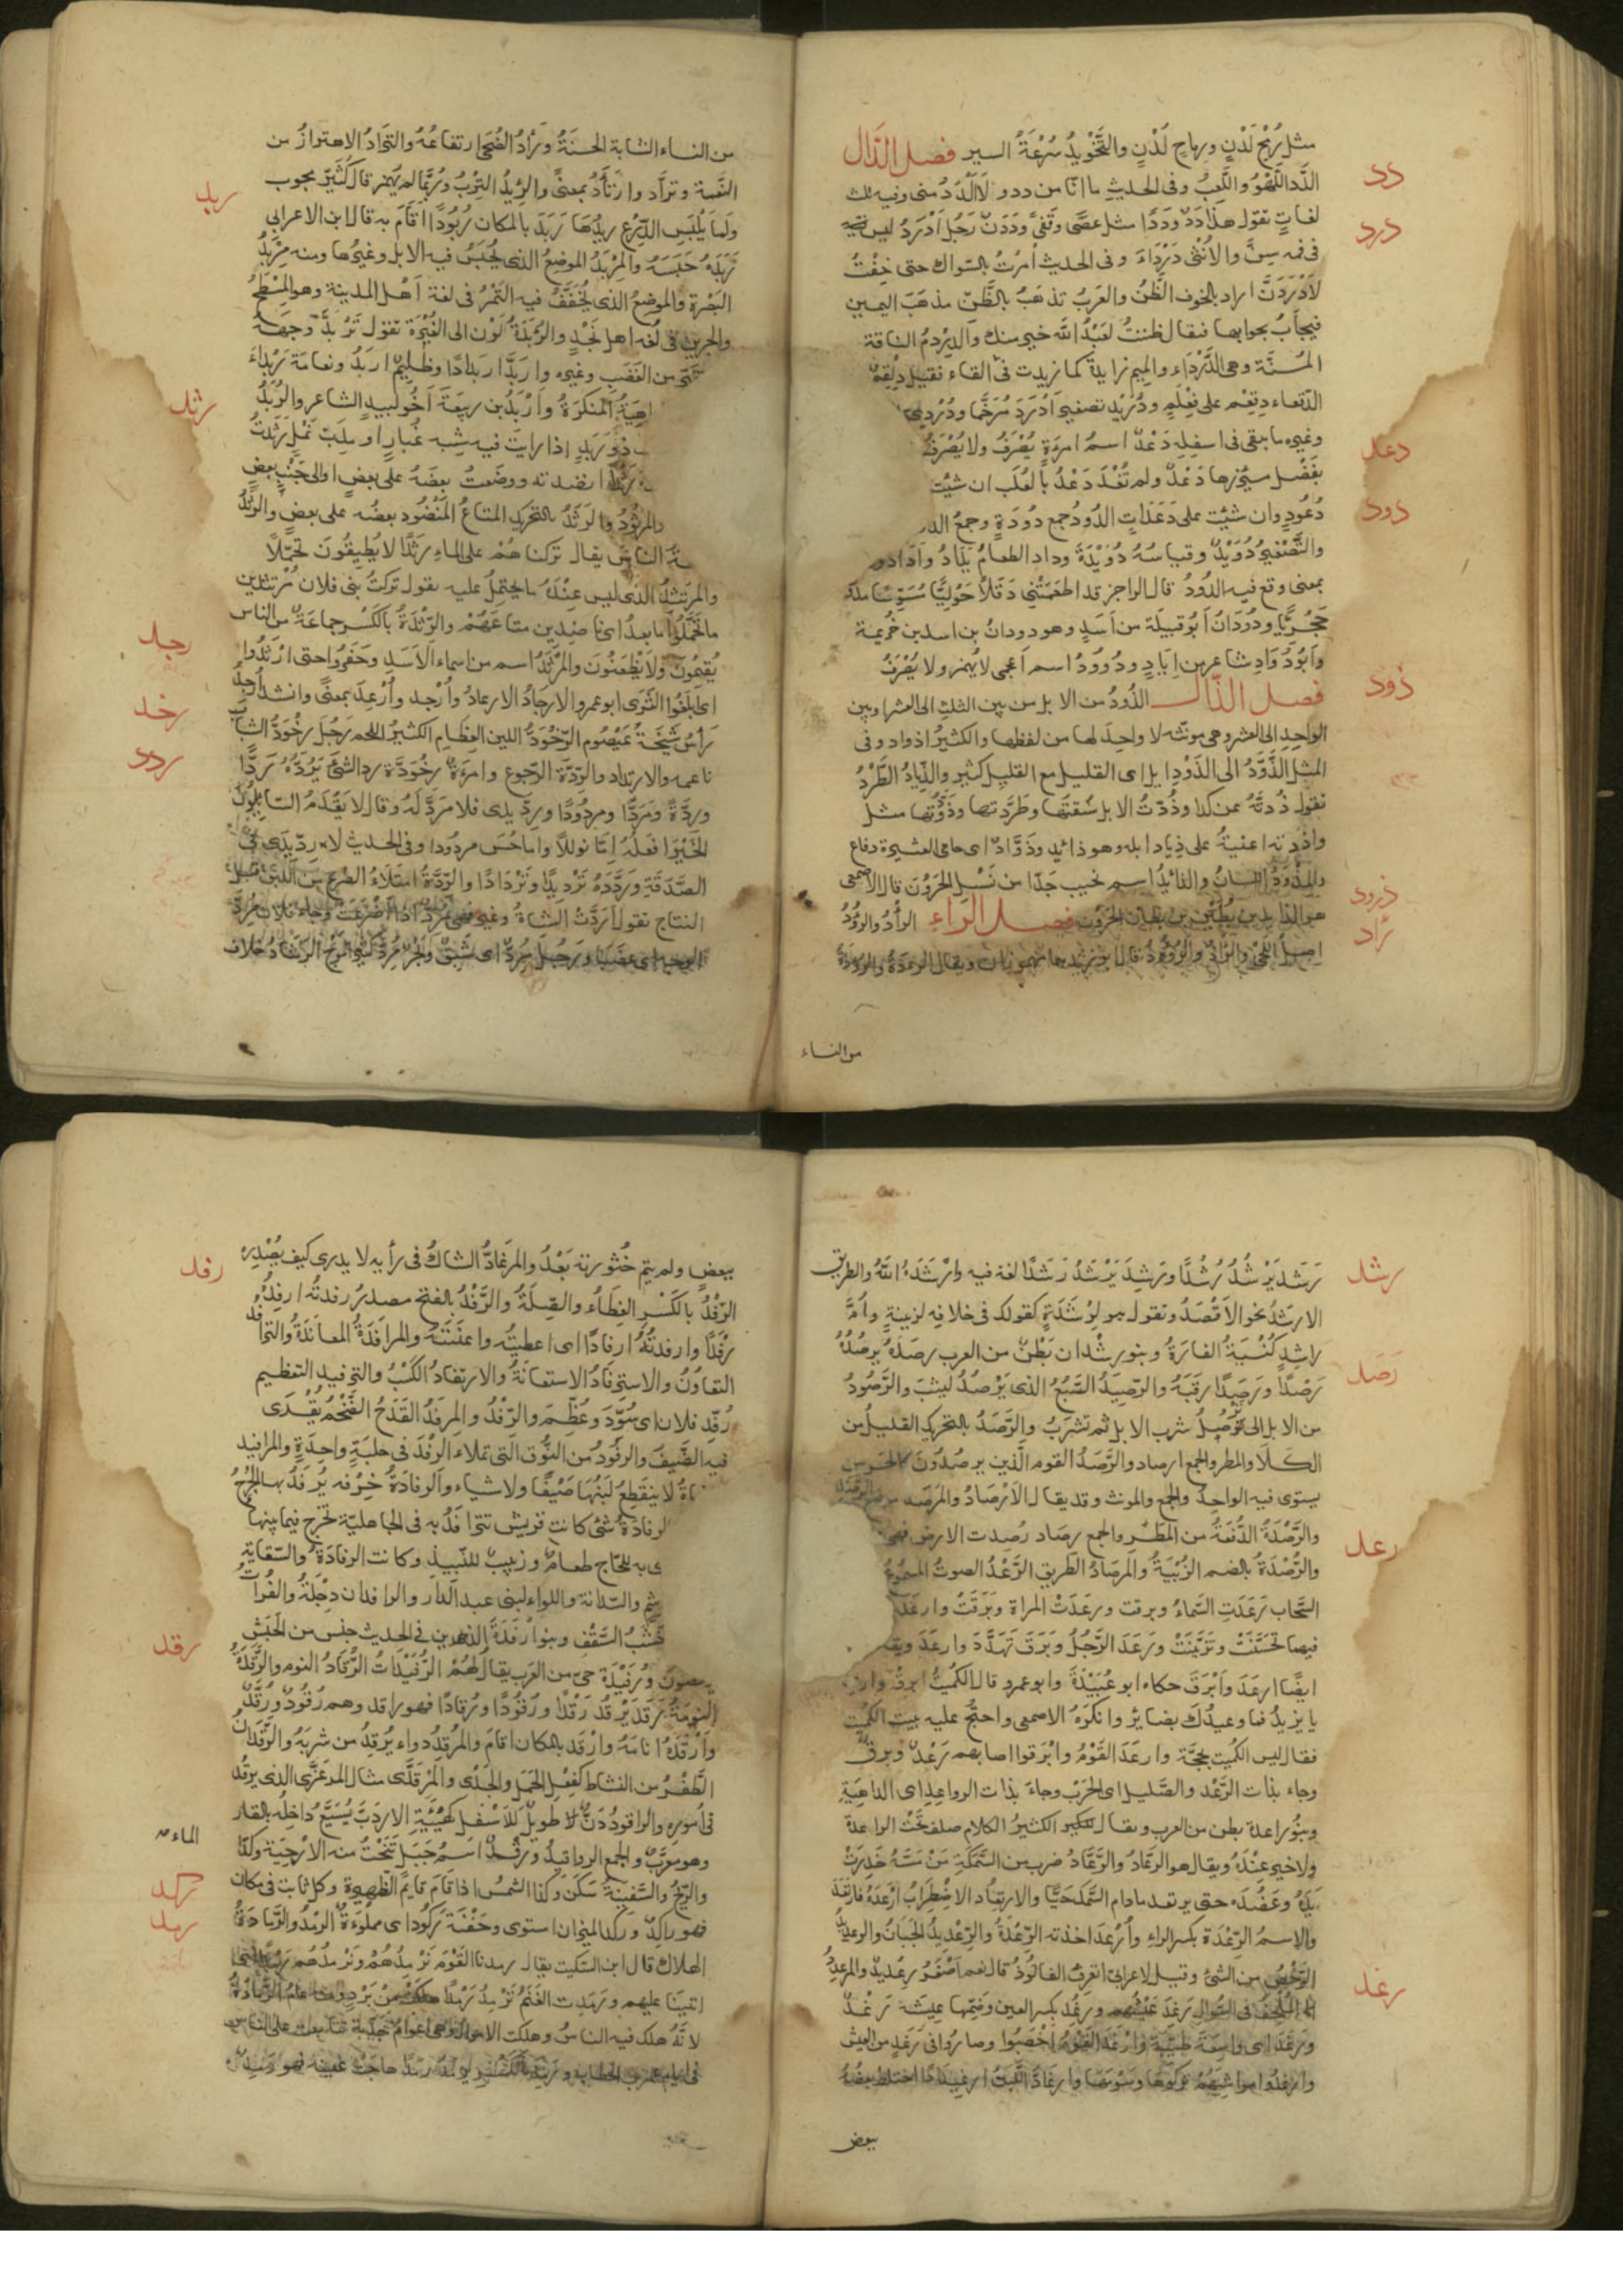 مثل رُمْحٍ لَدْنٍ ورماحٍ لُدْنٍ والتَّخْوِيدُ سُرْعَةُ السير فصل الدَّال
دد
الدَّد اللَّهْوُ واللَّعِبُ وفى الحديث ما انا من ددٍ ولا الدَّدُ منى وفيه ثلث
لغاتٍ تقول هذا دَدٌ ودَدًا مثل عصًى وقَفًى ودَدَنٌ رَجُلٌ اَدْرَدُ ليس
درد
فى فمه سِنٌّ والاُنْثى دَرْدَاءُ وفى الحديث اُمِرْتُ بالسّواك حتى خِفْتُ
لاَدْرَدَنَّ اراد بالخوف الظَّنَّ والعَرَبُ تذهَبُ بالظَّنّ مذهَبَ اليمين
فيجابُ بجوابها فيقال ظننتُ لعَبْدُ اللّه خير منك والدِرْدِمُ الناقة
المُسِنَّة وهى الدَّرْدَاء والميم زايدة كما زيدت فى
الدقعاء دِقْعِم على فِعْلِمٍ ودُرَيْد تصغير اَدْرَدَ مُرَخَّمًا ودُرْدِى
وغيره ما يبقى فى اسفله دَعْدٌ اسمُ امرءةٍ يُصْرَفُ ولا يُصْرَفُ
دعد
بفَضْل مئزرها دَعْدٌ ولم تُغْذَ دَعْدُ بالعُلَب ان شئت
دُعُودٍ وان شئت على دَعَدَاتٍ الدُودُ جمع دُودَةٍ وجمعُ الد
دود
والتَّصْغِيرُ دُوَيْدٌ وقياسُهُ دُوَيْدَةٌ وداد الطعامُ يَدَادُ وَاَدَادَ
بمعنى وقع فيه الدُّودُ قال الراجز قد اطعَمَتْنِى دَقَلاً حَوْلِيًّا مُسَوِّسًا
حَجْرِيًّا ودُودَانُ اَبُو قبيلَة من اَسَدٍ وهو دودانُ بن اسد بن خُزيمة
واَبُو دُوَادٍ شاعر من اِيَادٍ ودُ وُودُ اسم اَعجمى لا يُهمز ولا يُصْرَفُ
فصل الذَّال الذَّودُ من الابل من بين الثلث الى العشر وبين
ذود
الواحِدِ الى العشر وهى مونّثه لا واحِدَ لها من لفظها والكثيرُ اذواد وفى
المثل الذَّوْدُ الى الذَّوْدِ اِبل اى القليل مع القليل كثير والذِّيادُ الطَّرْدُ
تقول ذُدتُهُ عن كذا وذُدتُ الابل سُقتَهَا وطَرَدتها وذَوَّدْتُها مثل
واَذَدْته اعنتهُ على ذِيادِ ابله وهو ذائد وذَوَّادٌ اى حامى العشيرة دفاع
والمِذْوَدُ اللسانُ والذائِدُ اسم نجيب جَدّا من نَسْلِ الحَرُون قال الاصمعى
ذرود
هو الذايد بن بُطَيْن بن بطان الحَرُون فصل الرّاء الرأْدُ والرُّؤْدُ
رأد
اصل اللحى
من النساء
من النساء الشابة الحسنَةُ ورَأْدُ الضُحَى ارتفاعُهُ والترَأُّدُ الاهتزازُ من
النَّعمة وترأَّد وارتَأَدَ بمعنًى والرِّئدُ التِرْبُ ورُبَّما لم يُهمز قال كُثَيّر
ربد
ولَمَا يَلْبَس الدِّرْعَ رِيدُهَا رَبَدَ بالمكان رُبُودًا اَقَامَ به قال ابن الاعرابى
رَبَدَهُ حَبَسَهُ والمِرْبَدُ الموضِعُ الذى يُحْبَسُ فيه الابل وغيرها ومنه مِرْبَدُ
البَصْرة والموضِعُ الذى يُجَفَّفُ فيه التَّمْرُ فى لغة اَهْل المدينة وهو المِسْطَحُ
والجرين فى لُغه اهل نَجْدٍ والرُّبْدَةُ لَوْن الى الغُبْرَة تقول تَرَبَّدَ وجهَهُ
من الغَضَب وغيره وارْبَدَّ اربِدادًا وظَلِيمٌ اربَدُ ونعامَة رَبْدَاءُ
المُنكرَةُ واَرْبَدُ بن ربيعَةَ اَخُو لبيد الشاعر والرُّبَدُ
رثد
ذُو رَبَدٍ اذا رايتَ فيه شِبه غُبارٍ او مَدَبّ نَمْلٍ رَثَدتُ
رَثْدًا نضدته ووضعتُ بعضَهُ على بعضٍ او الى جَنْب بعضٍ
والمرثُودُ والرَّثَدُ بالتحريك المتاعُ المَنْضُود بعضُه على بعضٍ والرَثَدُ
الناسِ يقال تركنا هُمْ على الماء رَثَدًا لا يُطِيقُونَ تحمّلاً
والمرَتثِدُ الذى ليس عِنْدَهُ ما يحتمِلُ عليه تقول تركتُ بنى فلان مُرْتثدين
ما تَحَمَّلُوا ما بعدُ اى ناضِدِين متاعَهُمْ والرِّثدَةُ بالكَسْر جماعَةٌ من الناس
رجد
يُقِيمُونَ ولاَ يَظْعَنُونَ والمَرْثَدُ اسم من اسماء الاَسَدِ وحَفَرُوا حتى اَرْثَدُوا
اى بَلَغُوا الثَّرَى ابو عمرو الارجَادُ الارعادُ واُرْجِد واُرْعِدَ بمعنًى وانشد اُرجِدَ
رخد
رَأْسُ شَيْخَةٌ عَيْصُوم الرِّخْوَدُّ اللين العِظَام الكثيرُ اللحم رَجُل رِخْوَدُّ الشباب
ناعمه والارتداد والرِّدَّة الرّجوع وامرءَة رِخْوَدَّة رد الشئ يَرُدُّهُ رَدًّا
ردد
ورِدَّةً ومَرَدًّا ومردُودًا ورِدِّيدى فلا مَرَدَّ لَهُ وقال لا يَعْدَمُ السّايلُونَ
الخَيْر اَفْعَلُهُ اِمَّا نوالاً واما حُسْنَ مردُودا وفى الحديث لا رِدِّيدَى فى
الصَّدَقَة ورَدَّدَهُ تَرْدِيدًا وتَرْدَادًا والرِّدَّةُ امتَلاَءُ الضرع من اللبن قبل
النتاج تقول اَرَدَّتْ الشاةُ وغيرها فهى مُرِدٌّ اذا اَضْرَعَتْ وجاء فلان مُرِدَّ
الوجه اى غضبَانَ ورجُل مُرِدٌّ اى شَبِقٌ وبَحْرٌ مُرِدٌّ كثير المَوْج الرَشَادُ خلاف
رَشَدَ يَرْشُدُ رُشْدًا ورَشِدَ يَرْشَدُ رَشَدًا لغة فيه واَرْشَدَهُ اللّهُ والطريق
رشد
الارشَدُ نحو الاَقْصَدُ وتقول هو لِرَشْدَةٍ كقولك فى خلافه لِزِنيةٍ واُمُّ
راشِدٍ كُنْيَةُ الفارَةُ وبنو رشْدان بَطْنٌ من العرب رصَدَهُ يرصُدُهُ
رَصد
رَصْدًا ورَصَدًا رقَبَهُ والرَّصِيدُ السَّبُعُ الذى يَرْصُدُ ليثِبَ والرَّصُودُ
من الابل التى تَرْصُدُ شرب الابل ثم تشرَبُ والرَّصَدُ بالتحريك القليل من
الكَلاَ والمطر والجمع ارصاد والرَّصَدُ القوم الَّذين يرصُدُونَ كالحَرس
يستوى فيه الواحِدُ والجمع والمونث وقد يقال الاَرْصَادُ والمَرْصَد موضع الرَّصَدِ
والرَّصْدَةُ الدُّفعَةُ من المَطَر والجمع رصَاد رُصِدت الارض فهى
رعد
والرُّصْدَةُ بالضم الزُّبْيَةُ والمرصَادُ الطَّرِيق الرَّعْدُ الصوتُ المسمُوعُ
السَّحاب رَعَدَتِ السَّماءُ وبرقت ورعَدَتْ المراة وبَرَقَتْ وارعَدَ
فيهما تحَسَّنَتْ وتَزَيَّنَتْ ورَعَدَ الرَّجُلُ وبَرَقَ تَهَدَّدَ وارعَدَ
ايضًا ارعَدَ واَبْرَقَ حكاه ابو عُبَيْدَةَ وابو عمرو قال الكُمَيتُ ابرِقْ وارعِد
يا يزِيدُ فما وعيدُكَ بضايرٍ وانكَرَهُ الاصمعى واحتُجَّ عليه ببيت الكُميت
فقال ليس الكُميت بحجَّة وارعَدَ القَوْمُ وابْرَقوا اصابهم رَعْدٌ وبرقٌ
وجاء بذات الرَّعْد والصَّليل اى الحَرْب وجاءَ بذات الرواعِدِ اى الداهِيَةِ
وبنُو راعدة بطن من العرب ويقال للكثير الكلام صلف تَحْتَ الراعدة
ولا خير عِنْدَهُ ويقال هو الرعَّادُ والرَّعَّادُ ضرب من السَّمَكِ مَنْ مَسَّهُ خَدِرَتْ
يَدُهُ وعَضُدَه حتى يرتعد مادام السَّمَك حَيًّا والارتِعَاد الاضْطِرَابُ اَرْعَدَهُ فارتَعَدَ
والاسمُ الرِّعْدَة بكسر الراء واُرْعِدَ اخذته الرِّعْدَةُ والرِّعْدِيدُ الجَبَانُ والرعديدُ
الرَّخْصُ من الشئ وقيل لاعرابى اتعرِفُ الفالُوذَ قال نعم اَصْفَرُ رِعْدِيدٌ والمرعدِدُ
رغد
المُلْحِفُ فى السُوال رَغِدَ عَيْشُهم ورغُدَ بكسر العين وضَمِّها عِيشَة رَغْدٌ
ورَغَدٌ اى واسِعَة طيّبَة واَرْغَدَ القَوْمُ اَخْصَبُوا وصارُوا فى رَغَدٍ من العيش
وارغَدُوا مواشِيَهُمْ تركوهَا وسَوْمَهَا وارغَادَّ اللَّبَنُ ارغيدَادًا اختلط بعضُهُ
ببعض
ببعض ولم يتم خُثُورته بَعْدُ والمرغَادُّ الشاكُّ فى رأيه لا يدرى كيف يُصْدِره
رفد
الرِّفْدُ بالكَسْر العَطَاءُ والصِّلَةُ والرَّفْدُ بالفتح مصدر رفدتُه ارفِدُ
رَفْدًا وارفدتُهُ ارفادًا اى اعطيتُه واعنتَهُ والمرافَدَةُ المعانَدَةُ والترافُد
التعاوُنُ والاستِرفَادُ الاستعانَةُ والارتفادُ الكَسْبُ والترفيد التعظيم
رُفِّدَ فلان اى سُوِّدَ وعُظِّمَ والرِّفْدُ والمِرفَدُ القَدَحُ الضَّخْمُ يُقْرَى
فيه الضَّيفَ والرفُودُ من النُّوق التى تملاء الرِّفْدَ فى حلبَةٍ واحِدَةٍ والمرافيد
لا ينقَطِعُ لبَنُهَا صَيْفًا ولا شِتاء والرِفادَةُ خِرْقه يُرفَدُ بها الجُرْحُ
الرفادَةُ شئ كانت قريش تترافَدُ به فى الجاهليّة تُخْرِج فيما بينها
به للحَاج طعام وزبيب للنّبيذ وكانت الرفادَة والسّقايةِ
والسّدانة واللواء لبنى عبد الدار والرافدان دِجْلَةُ والفُراتُ
خشَبُ السَّقْفِ وبنو ارْفَدَة الذين فى الحديث جنس من الحَبَش
رقد
ورُفَيْدَة حىّ من العرب يقال لَهُم الرُّفَيْدَاتُ الرُّقَادُ النوم والرَّقْدَةُ
النومَةُ رَقَد يَرْقُد رَقْدًا ورُقُودًا ورُقادًا فهو راقد وهم رُقُودٌ ورُقَّدٌ
واَرْقَدَهُ انامَهُ وارقَد بالمكان اقامَ والمُرْقِدُ دواء يُرْقِدُ من شربَهُ والرَّقَدَانُ
الطَّفْرُ من النشاط كفِعْلِ الحَمَل والجَدْى والمِرْقَدَّى مثال المِرعزَّى الذى يرقدُّ
فى اُمورِه والراقودُ دَنٌّ طويل الاَسْفَل كهَيْئَةِ الاردَبّ يُسَيَّعُ دَاخِلُهُ بالقار
وهو معَرَّبٌ والجمع الرواقيدُ ورَقْدٌ اسمُ جَبَل تُنْحَتُ منه الارْحِيَة وركدَ
الماءُ
والرّيحُ والسَّفِينَةُ سَكَنَ وكذا الشمسُ اذا قَامَ قايمُ الظهيرة وكل ثابت فى مكان
ركد
فهو راكِدٌ وركد الميزان استوى وجَفْنَة رَكُود اى مملُوَءَةٌ الرمْدُ والرَّمادَةُ
رمد
الهلاك قال ابن السّكيت يقال رمدنا القَوْمَ نَرْمِدُهُمْ ونَرْمُدُهُم رَمْدًا
اتينَا عليهم ورَمِدت الغَنَمُ تَرْمِدُ رَمْدًا هلكَتْ من بَرْدٍ ومنه عامُ الرَّمادَةُ
لانَّهُ هلك فيه الناسُ وهلكت الاموال وهى اَعْوَامُ جَدْبة تتابعت على الناس
فى ايام عمر بن الخطاب ورَمِدَ بالكسْر يَرمَدُ رمَدًا هاجَتْ عينه فهو رَمِدٌ